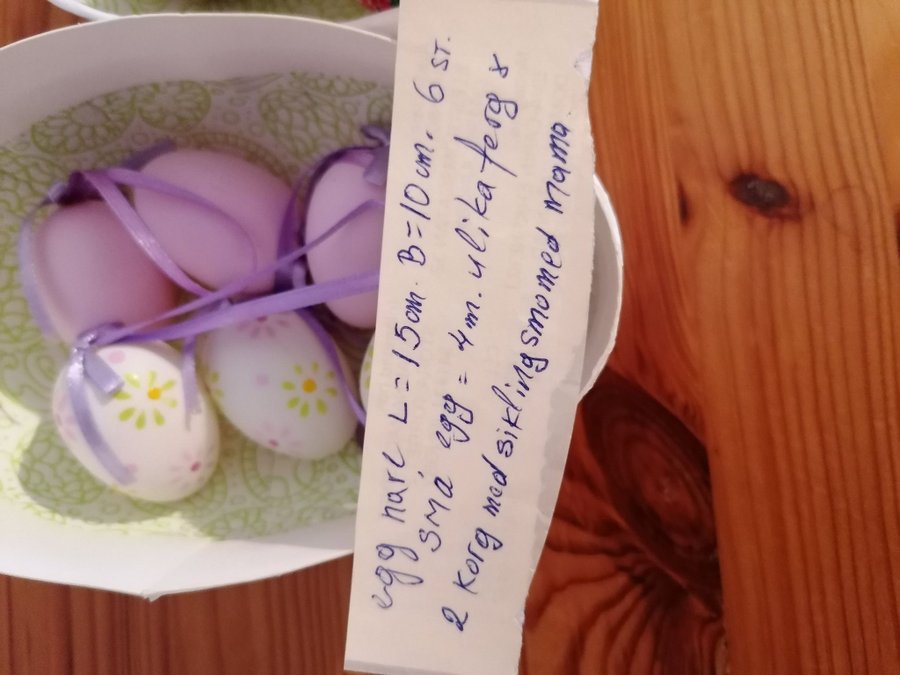 egg harl L = 15 cm. B = 10 cm. 6 ST.
SMÁ egg = 4 m. ulika ferg 8
2 Korg med siklingsmomed mama.